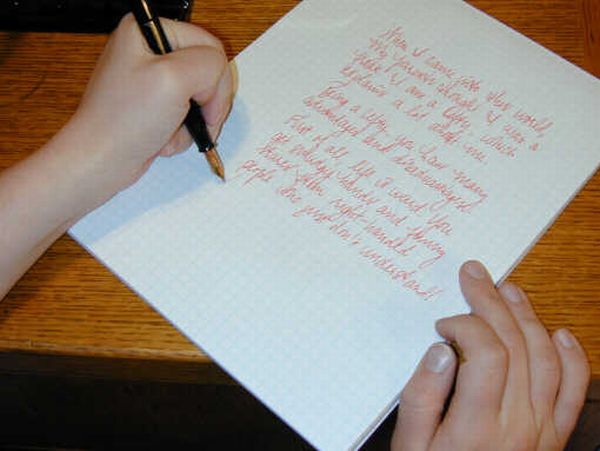 When I came into this world,
my parents thought I was a
I am a lefty, which
explains a lot about me.
Being a lefty you have many
advantages and disadvantages.
First of all, life is weird. You
do ordinary and funny
things other right-handed
people just don't understand!